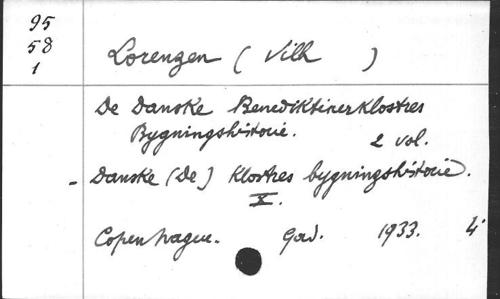 95
58
1
Lorenzen ( Vilh )
De Danske Benediktinerklostres
Bygningshistorie.
2 vol.
- Danske (De) Klostres bygningshistorie.
X.
Copenhague. Gad. 1933. 4°